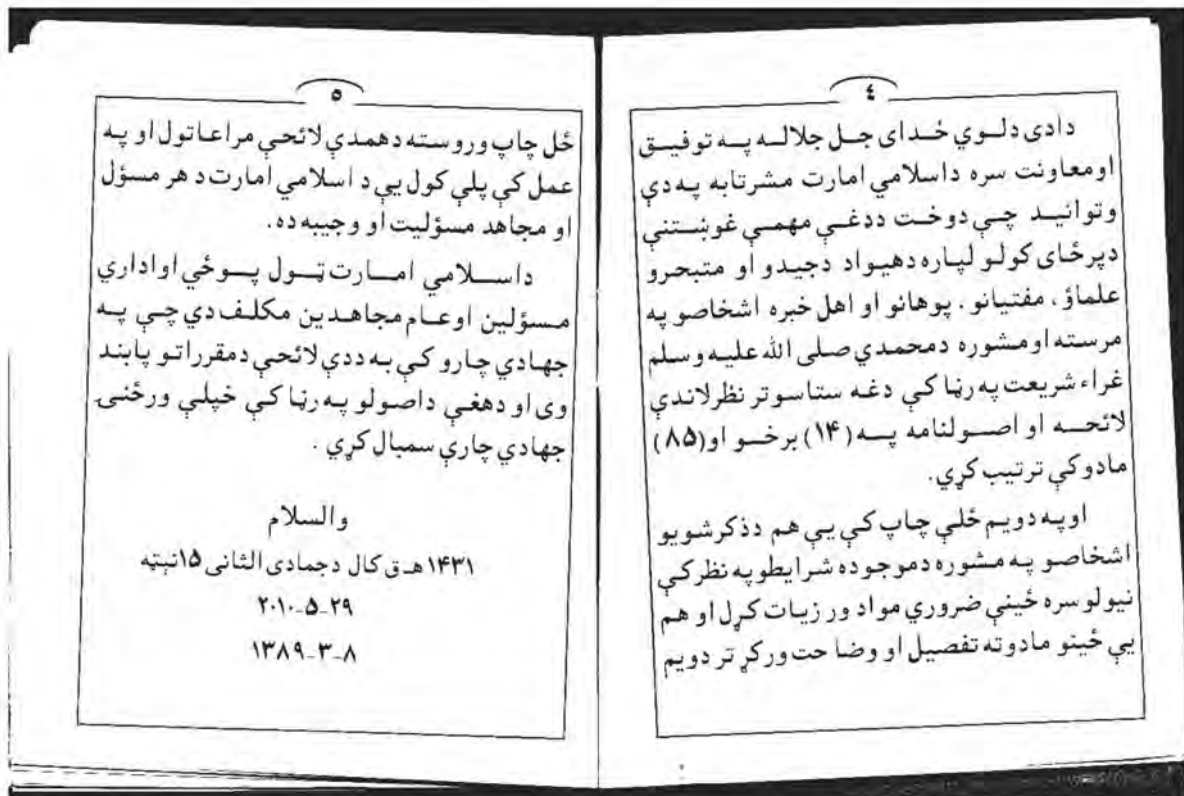 ٤
دادی دلـوي خـدای جـل جلالـه پـه توفیـق
اومعاونت سره داسلامي امارت مشرتابه پـه دې
وتوانیـد چـې دوخـت ددغـې مهمـې غوښـتنې
دپرځای کولو لپاره دهیواد دجیدو او متبحرو
علماؤ، مفتیانو، پوهانو او اهل خبره اشخاصو په
مرسته اومشوره دمحمدي صلی الله علیه وسلم
غراء شریعت په رڼا کې دغه ستاسو تر نظر لاندې
لائحـه او اصـولنامه پـه (۱۴) برخـو او (۸۵)
مادو کې ترتیب کړي.
اوپه دویم ځلې چاپ کې یې هم دذکرشویو
اشخاصو په مشوره دموجوده شرایطو په نظرکې
نیولو سره ځینې ضروري مواد ور زیات کړل او هم
یې ځینو مادوته تفصیل او وضاحت ورکړ تر دویم
٥
ځل چاپ وروسته دهمدې لائحې مراعاتول او په
عمل کې پلي کول یې د اسلامي امارت د هر مسؤل
او مجاهد مسؤلیت او وجیبه ده.
داسـلامي امـارت ټـول پـوځي اواداري
مسؤلین اوعـام مجاهـدین مکلـف دي چـې پـه
جهادي چارو کې بـه ددې لائحې دمقرراتـو پابند
وی او دهغې داصولو پـه رڼا کې خپلې ورځنی
جهادي چارې سمبال کړي .
والسلام
۱۴۳۱ هـ ق کال دجمادی الثانی ۱۵نېټه
۲۰۱۰-۵-۲۹
۱۳۸۹-۳-۸